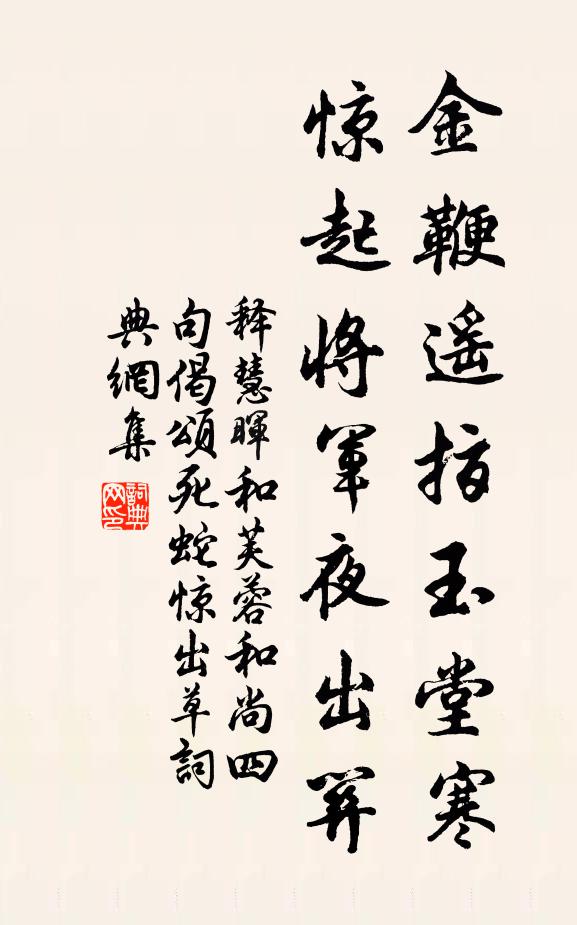 金鞭遥指玉堂寒
惊起将軍夜出关
释慧暉和芙蓉和尚四
句偈頌死蛇惊出草詞
典網集
詞典网印